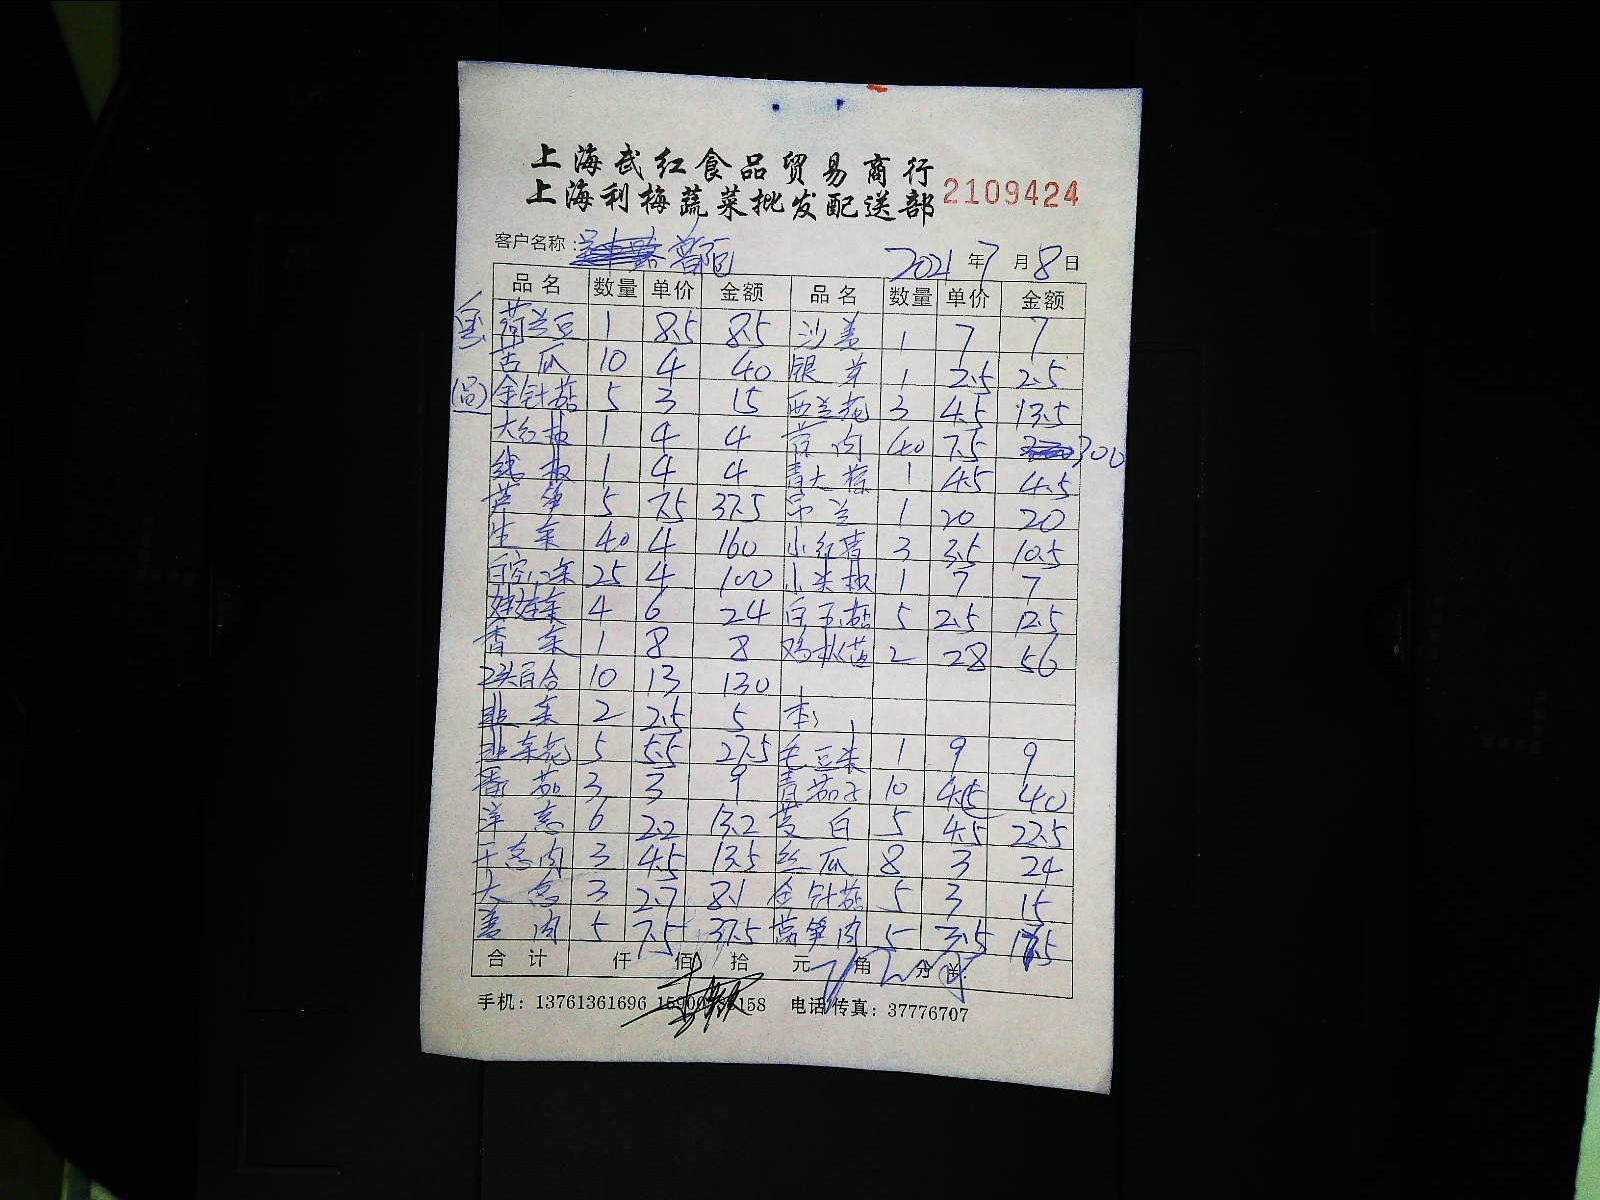 上海武红食品贸易商行
上海利梅蔬菜批发配送部 2109424
客户名称： 2021年7月8日
品名 数量 单价 金额 品名 数量 单价 金额
荷兰豆 1 8.5 8.5 沙姜 1 7 7
苦瓜 10 4 40 银芽 1 2.5 2.5
金针菇 5 3 15 西兰花 3 4.5 13.5
大红椒 1 4 4 肉 40 7.5 300
线椒 1 4 4 青大蒜 1 4.5 4.5
芦笋 5 7.5 37.5 吊兰 1 20 20
生菜 40 4 160 小红青 3 3.5 10.5
白空心菜 25 4 100 小米椒 1 7 7
娃娃菜 4 6 24 白玉菇 5 2.5 12.5
香菜 1 8 8 鸡枞菌 2 28 56
2头百合 10 13 130
韭菜 2 2.5 5
韭菜花 5 5.5 27.5 毛豆米 1 9 9
番茄 3 3 9 青茄子 10 4.5 40
洋葱 6 2.2 13.2 茭白 5 4.5 22.5
干葱肉 3 4.5 13.5 丝瓜 8 3 24
大葱 3 2.7 8.1 金针菇 5 3 15
姜肉 5 7.5 37.5 莴笋肉 5 3.5 17.5
合计 仟 佰 拾 元 角 分
手机：13761361696 158 电话/传真：37776707